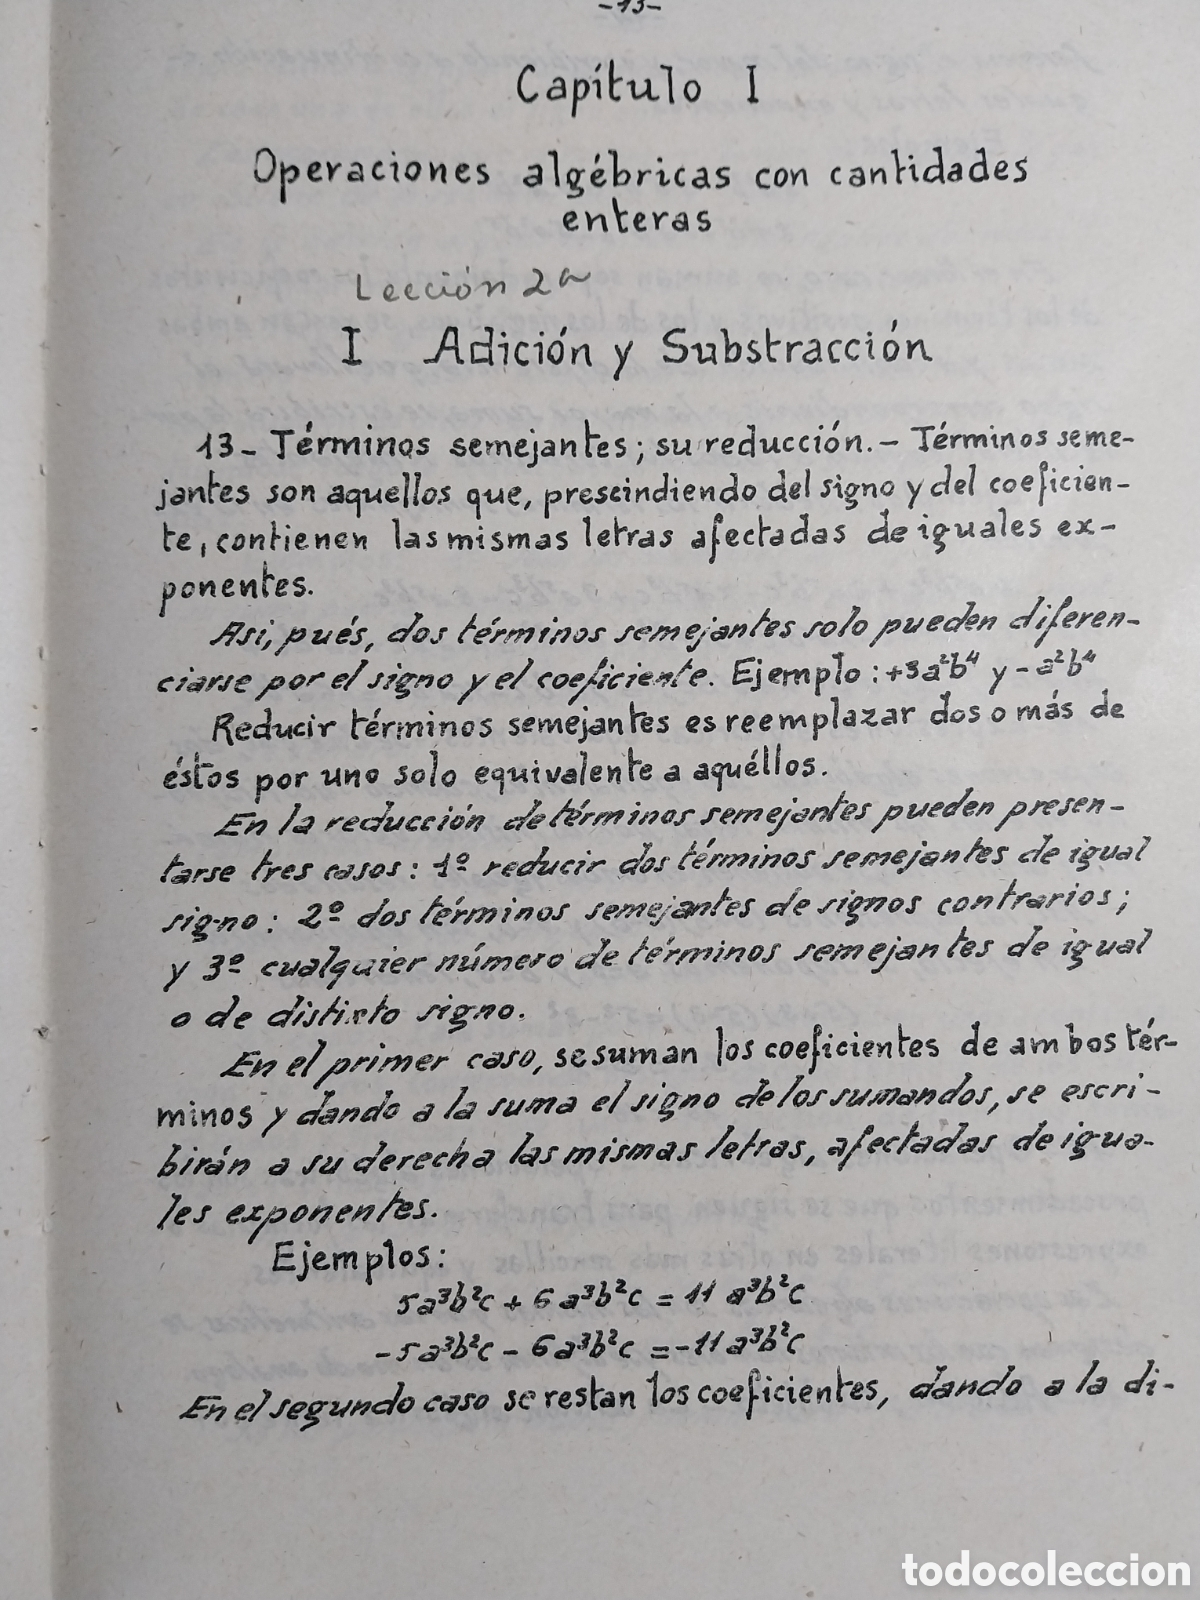 -13-
Capítulo I
Operaciones algébricas con cantidades
enteras
Lección 2ª
I Adición y Substracción
13- Términos semejantes; su reducción.- Términos seme-
jantes son aquellos que, prescindiendo del signo y del coeficien-
te, contienen las mismas letras afectadas de iguales ex-
ponentes.
Asi, pués, dos términos semejantes solo pueden diferen-
ciarse por el signo y el coeficiente. Ejemplo: +3a²b⁴ y -a²b⁴
Reducir términos semejantes es reemplazar dos o más de
éstos por uno solo equivalente a aquéllos.
En la reducción de términos semejantes pueden presen-
tarse tres casos: 1º reducir dos términos semejantes de igual
signo: 2º dos términos semejantes de signos contrarios;
y 3º cualquier número de términos semejantes de igual
o de distinto signo.
En el primer caso, se suman los coeficientes de ambos tér-
minos y dando a la suma el signo de los sumandos, se escri-
birán a su derecha las mismas letras, afectadas de igua-
les exponentes.
Ejemplos:
5a³b²c + 6a³b²c = 11a³b²c
-5a³b²c - 6a³b²c = -11a³b²c
En el segundo caso se restan los coeficientes, dando a la di-
todocoleccion